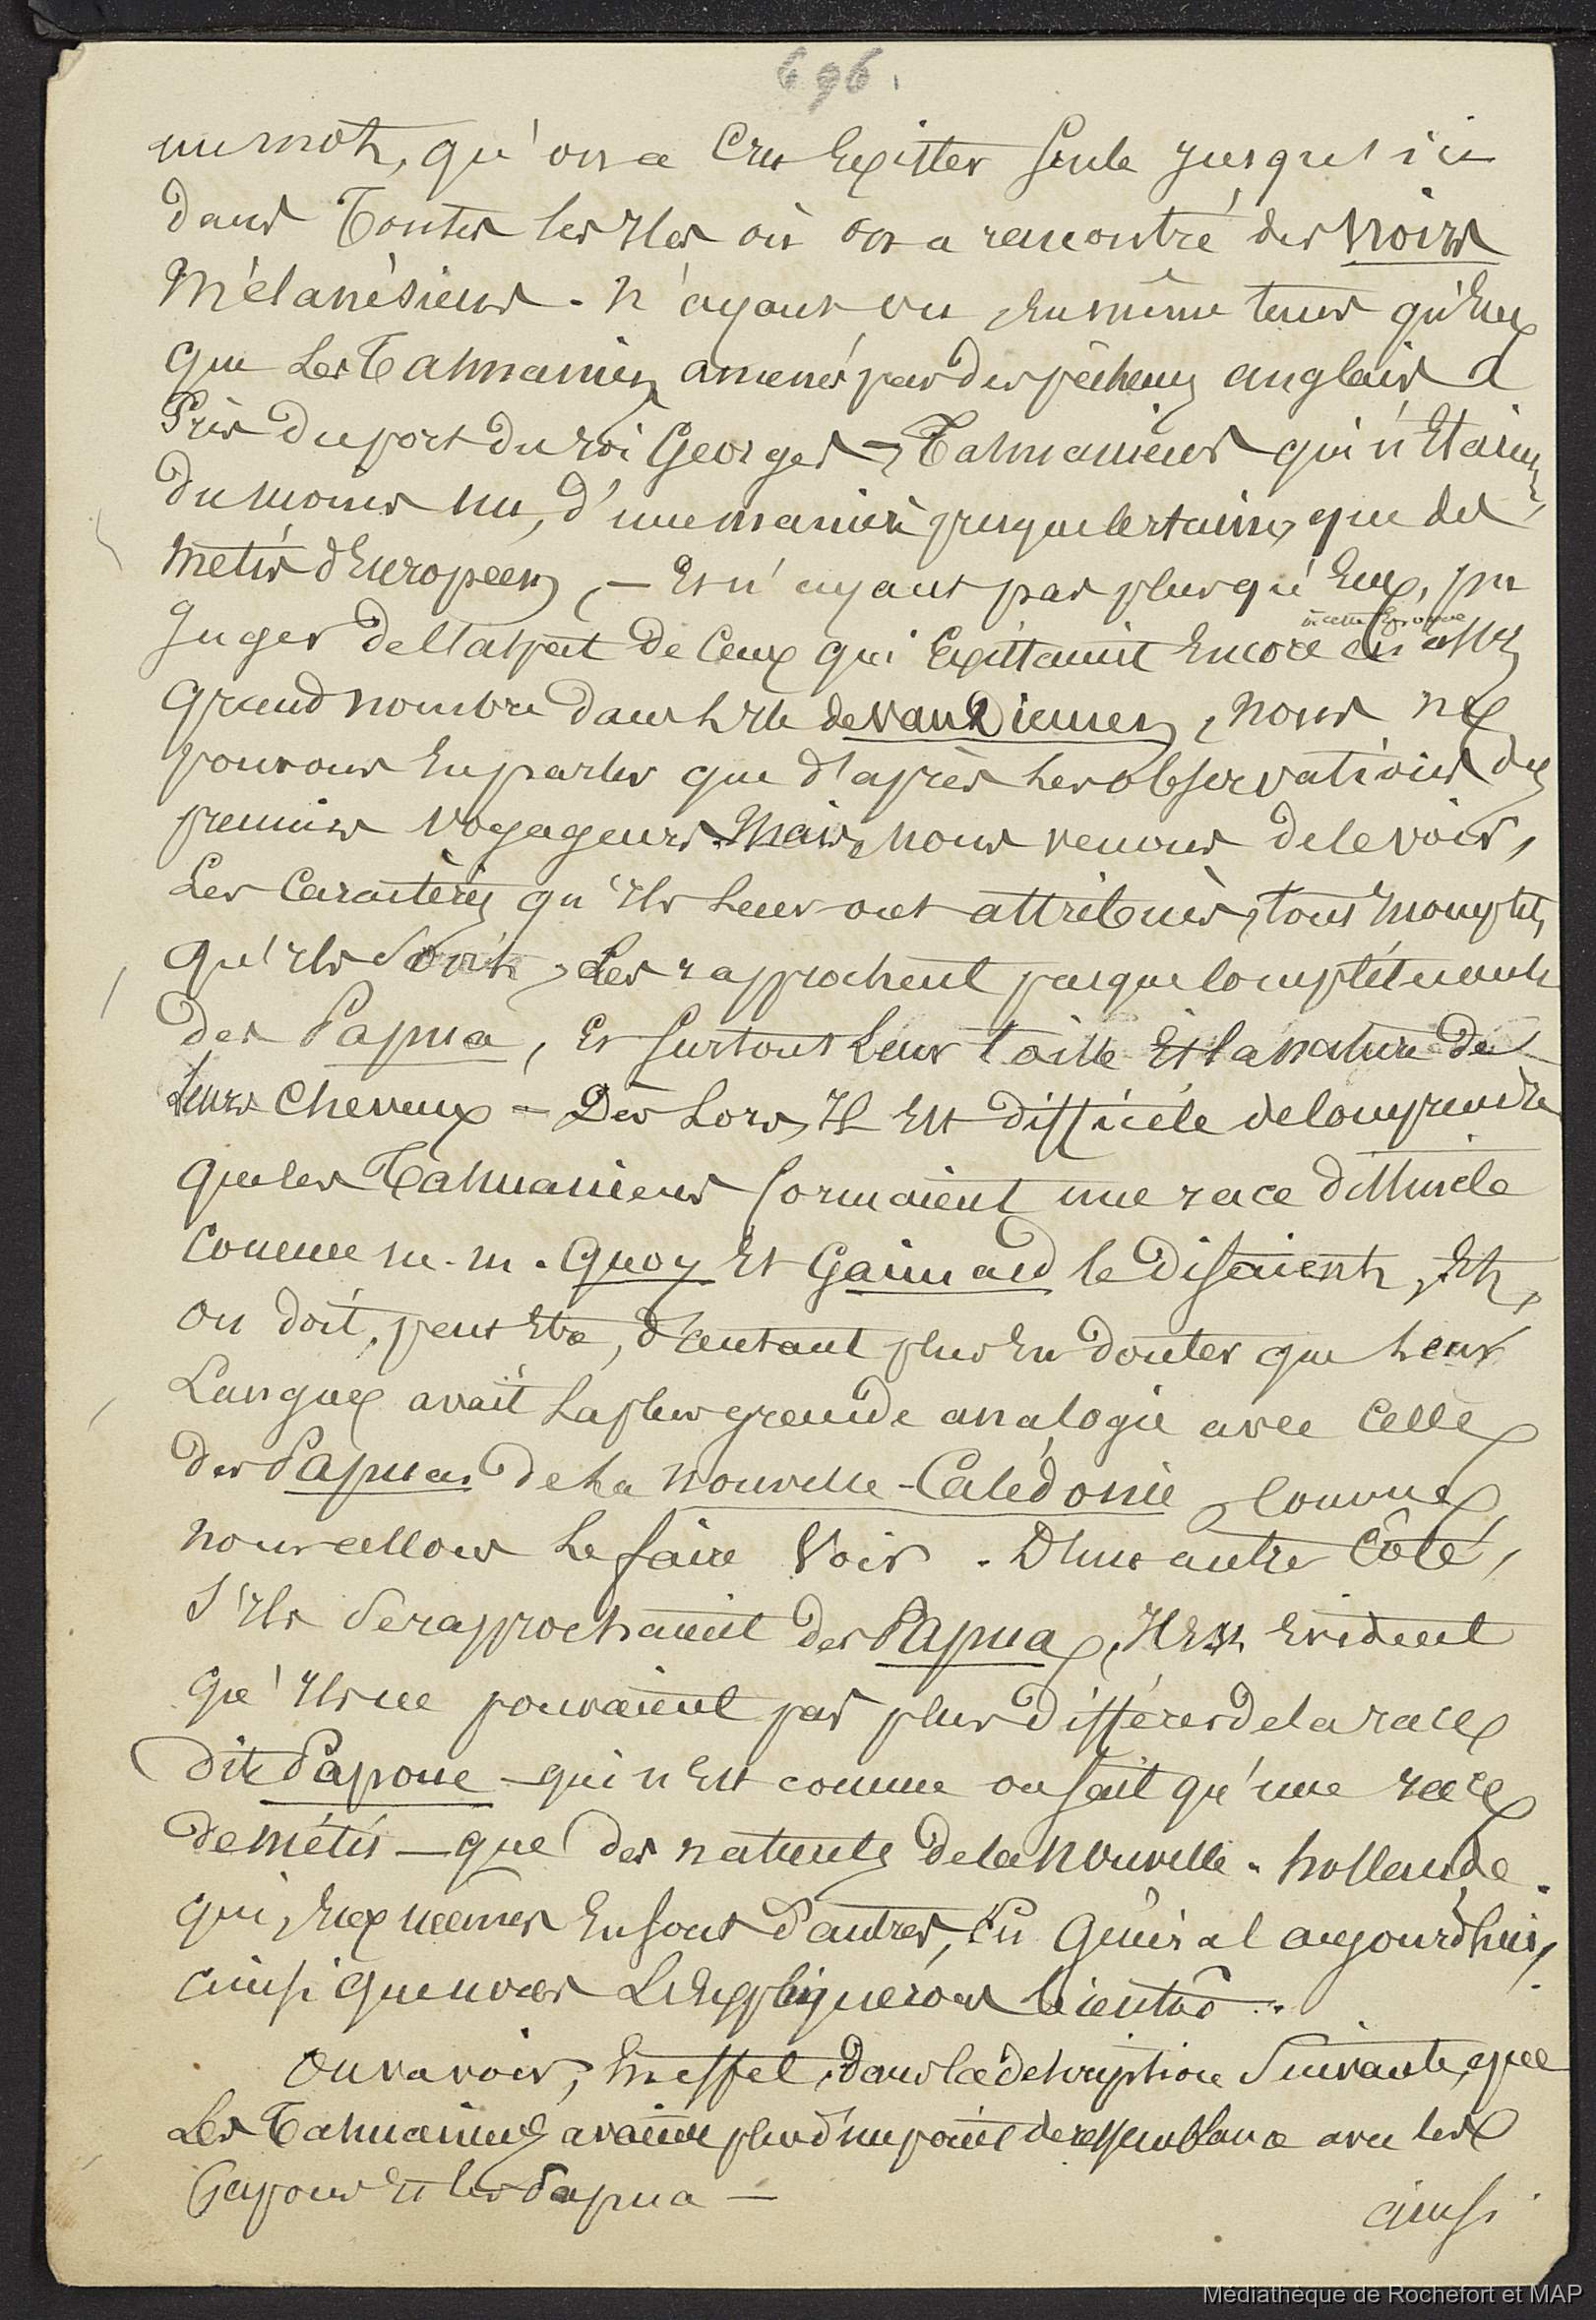 696.
un mot, qu'on a cru Exister seule jusqu'ici
dans Toutes les Iles où on a rencontré des noirs
Mélanésiens. N'ayant vu, En même tems qu'Eux
que Les Tasmaniens amenés par des pêcheurs anglais
Près du port du roi Georges — Tasmaniens qui n'Etaient,
du moins d'une manière presque certaine, que des
métis d'Européens, — Et n'ayant pas plus qu'Eux, pu
juger de l'aspect de Ceux qui Existaient Encore à cette Epoque en assez
grand nombre dans L'Ile de Van Diemen, nous ne
pouvons En parler que d'après les observations des
premiers voyageurs. Mais, nous venons de le voir,
Les Caractères qu'Ils Leur ont attribués, tout Incomplets
qu'Ils Soient, Les rapprochent presque complétement
des Papua, Et surtout Leur taille Et la nature de
leurs cheveux — Dès Lors, Il Est difficile de comprendre
que les Tasmaniens formaient une race distincte
comme m.m. Quoy Et Gaimard le disaient, Et,
on doit, peut Etre, d'autant plus En douter que Leur
Langue avait La plus grande analogie avec celle
des Papuas de La nouvelle-Calédonie, comme
nous allons Le faire Voir. D'un autre Côté,
s'Ils Se rapprochaient des Papua, Il Est Evident
qu'Ils ne pouvaient pas plus différer de la race
dite Papoue — qui n'Est comme on sait qu'une race
de métis — que des naturels de la Nouvelle-hollande
qui, Eux mêmes En sont d'autres, En Général aujourd'hui,
ainsi que nous L'Expliquerons bientôt.
On va voir, En effet, dans la description Suivante, que
Les Tasmaniens avaient plus d'un point de ressemblance avec les
Papous Et les Papua —
ainsi
Médiathèque de Rochefort et MAP